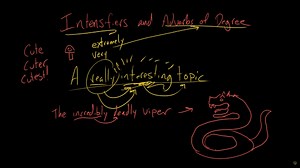 Intensfiers and Adverbs of Degree
extremely
very
Cute
Cuter
Cutest
A really interesting topic
The incredibly deadly viper